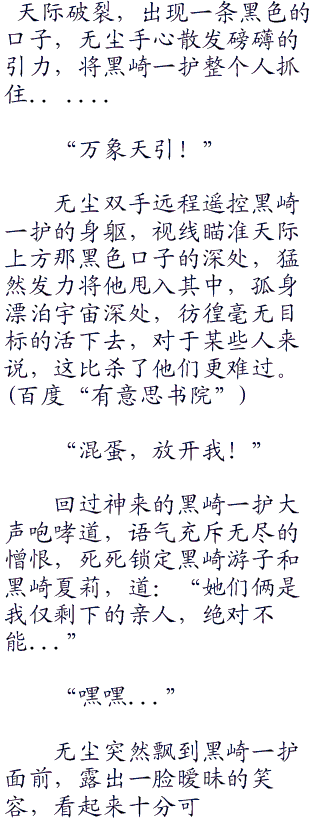 天际破裂，出现一条黑色的
口子，无尘手心散发磅礴的
引力，将黑崎一护整个人抓
住．．．．．．
“万象天引！”
无尘双手远程遥控黑崎
一护的身躯，视线瞄准天际
上方那黑色口子的深处，猛
然发力将他甩入其中，孤身
漂泊宇宙深处，彷徨毫无目
标的活下去，对于某些人来
说，这比杀了他们更难过。
(百度“有意思书院”)
“混蛋，放开我！”
回过神来的黑崎一护大
声咆哮道，语气充斥无尽的
憎恨，死死锁定黑崎游子和
黑崎夏莉，道：“她们俩是
我仅剩下的亲人，绝对不
能...”
“嘿嘿...”
无尘突然飘到黑崎一护
面前，露出一脸暧昧的笑
容，看起来十分可